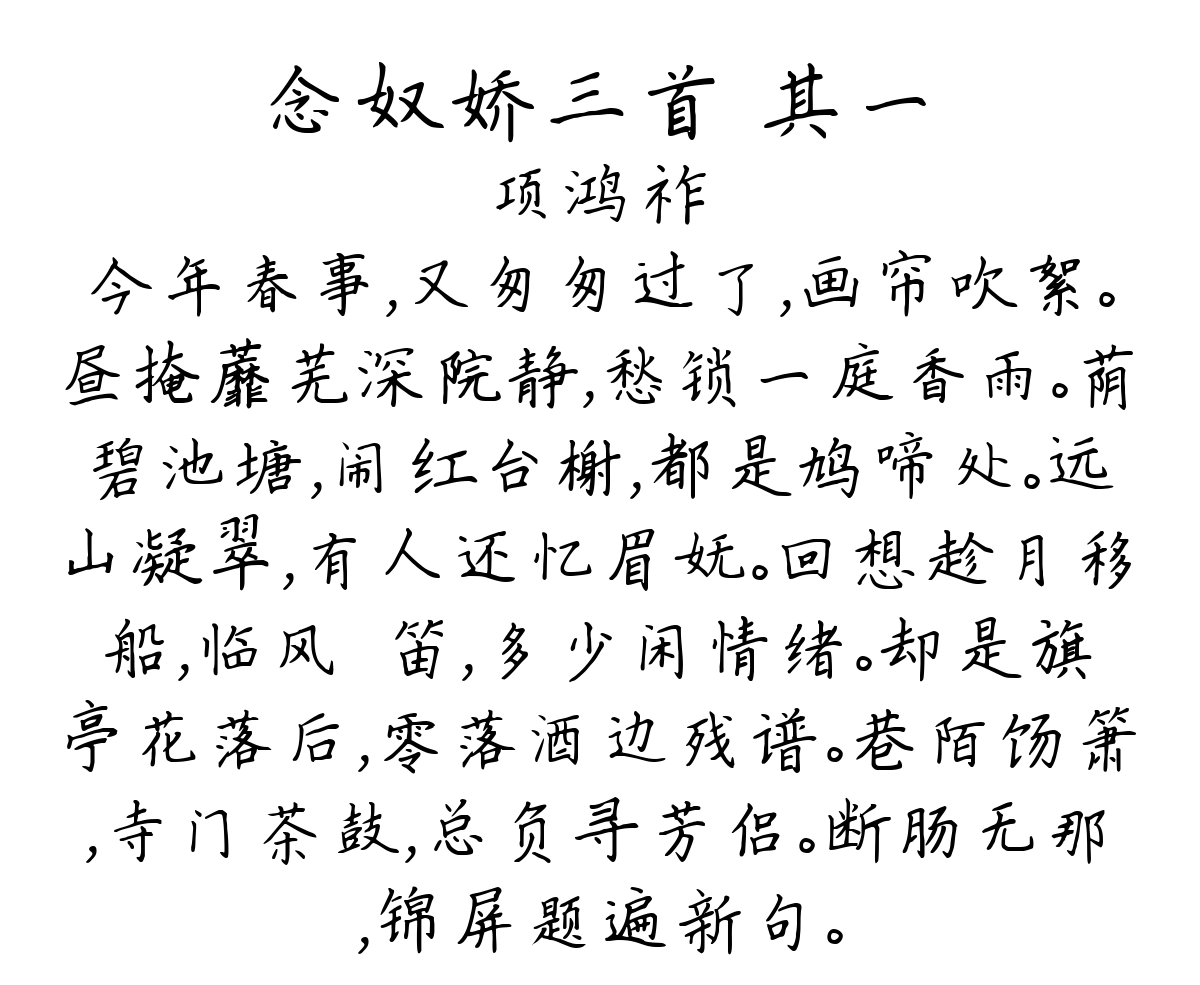 念奴娇三首 其一
项鸿祚
今年春事,又匆匆过了,画帘吹絮。
昼掩蘼芜深院静,愁锁一庭香雨。荫
碧池塘,闹红台榭,都是鸠啼处。远
山凝翠,有人还忆眉妩。回想趁月移
船,临风 笛,多少闲情绪。却是旗
亭花落后,零落酒边残谱。巷陌饧箫
,寺门茶鼓,总负寻芳侣。断肠无那
,锦屏题遍新句。